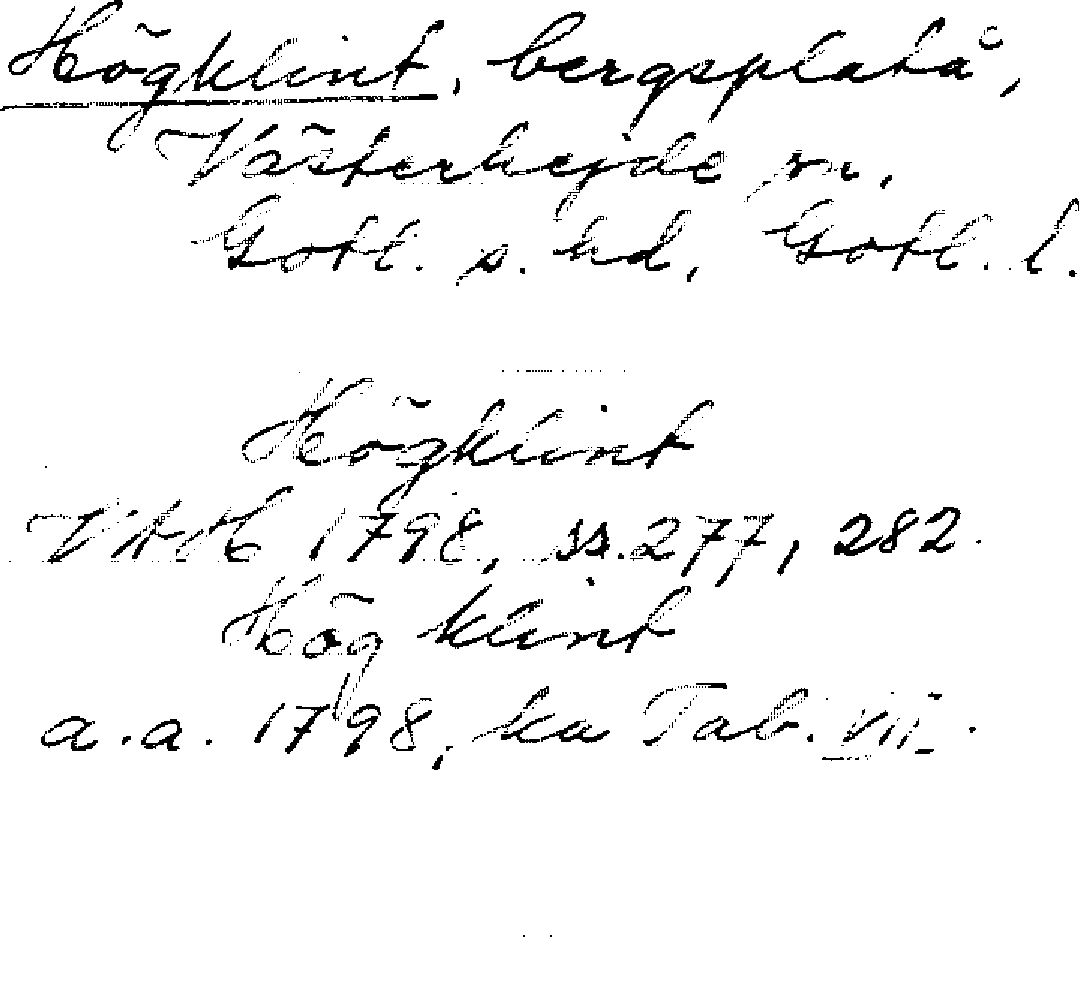 Högklint, bergsplatå,
Västerhejde sn,
Gotl. s. hd, Gotl. l.
Högklint
VAH 1798, ss. 277, 282.
Hög klint
a.a. 1798, ka Tab. VII.